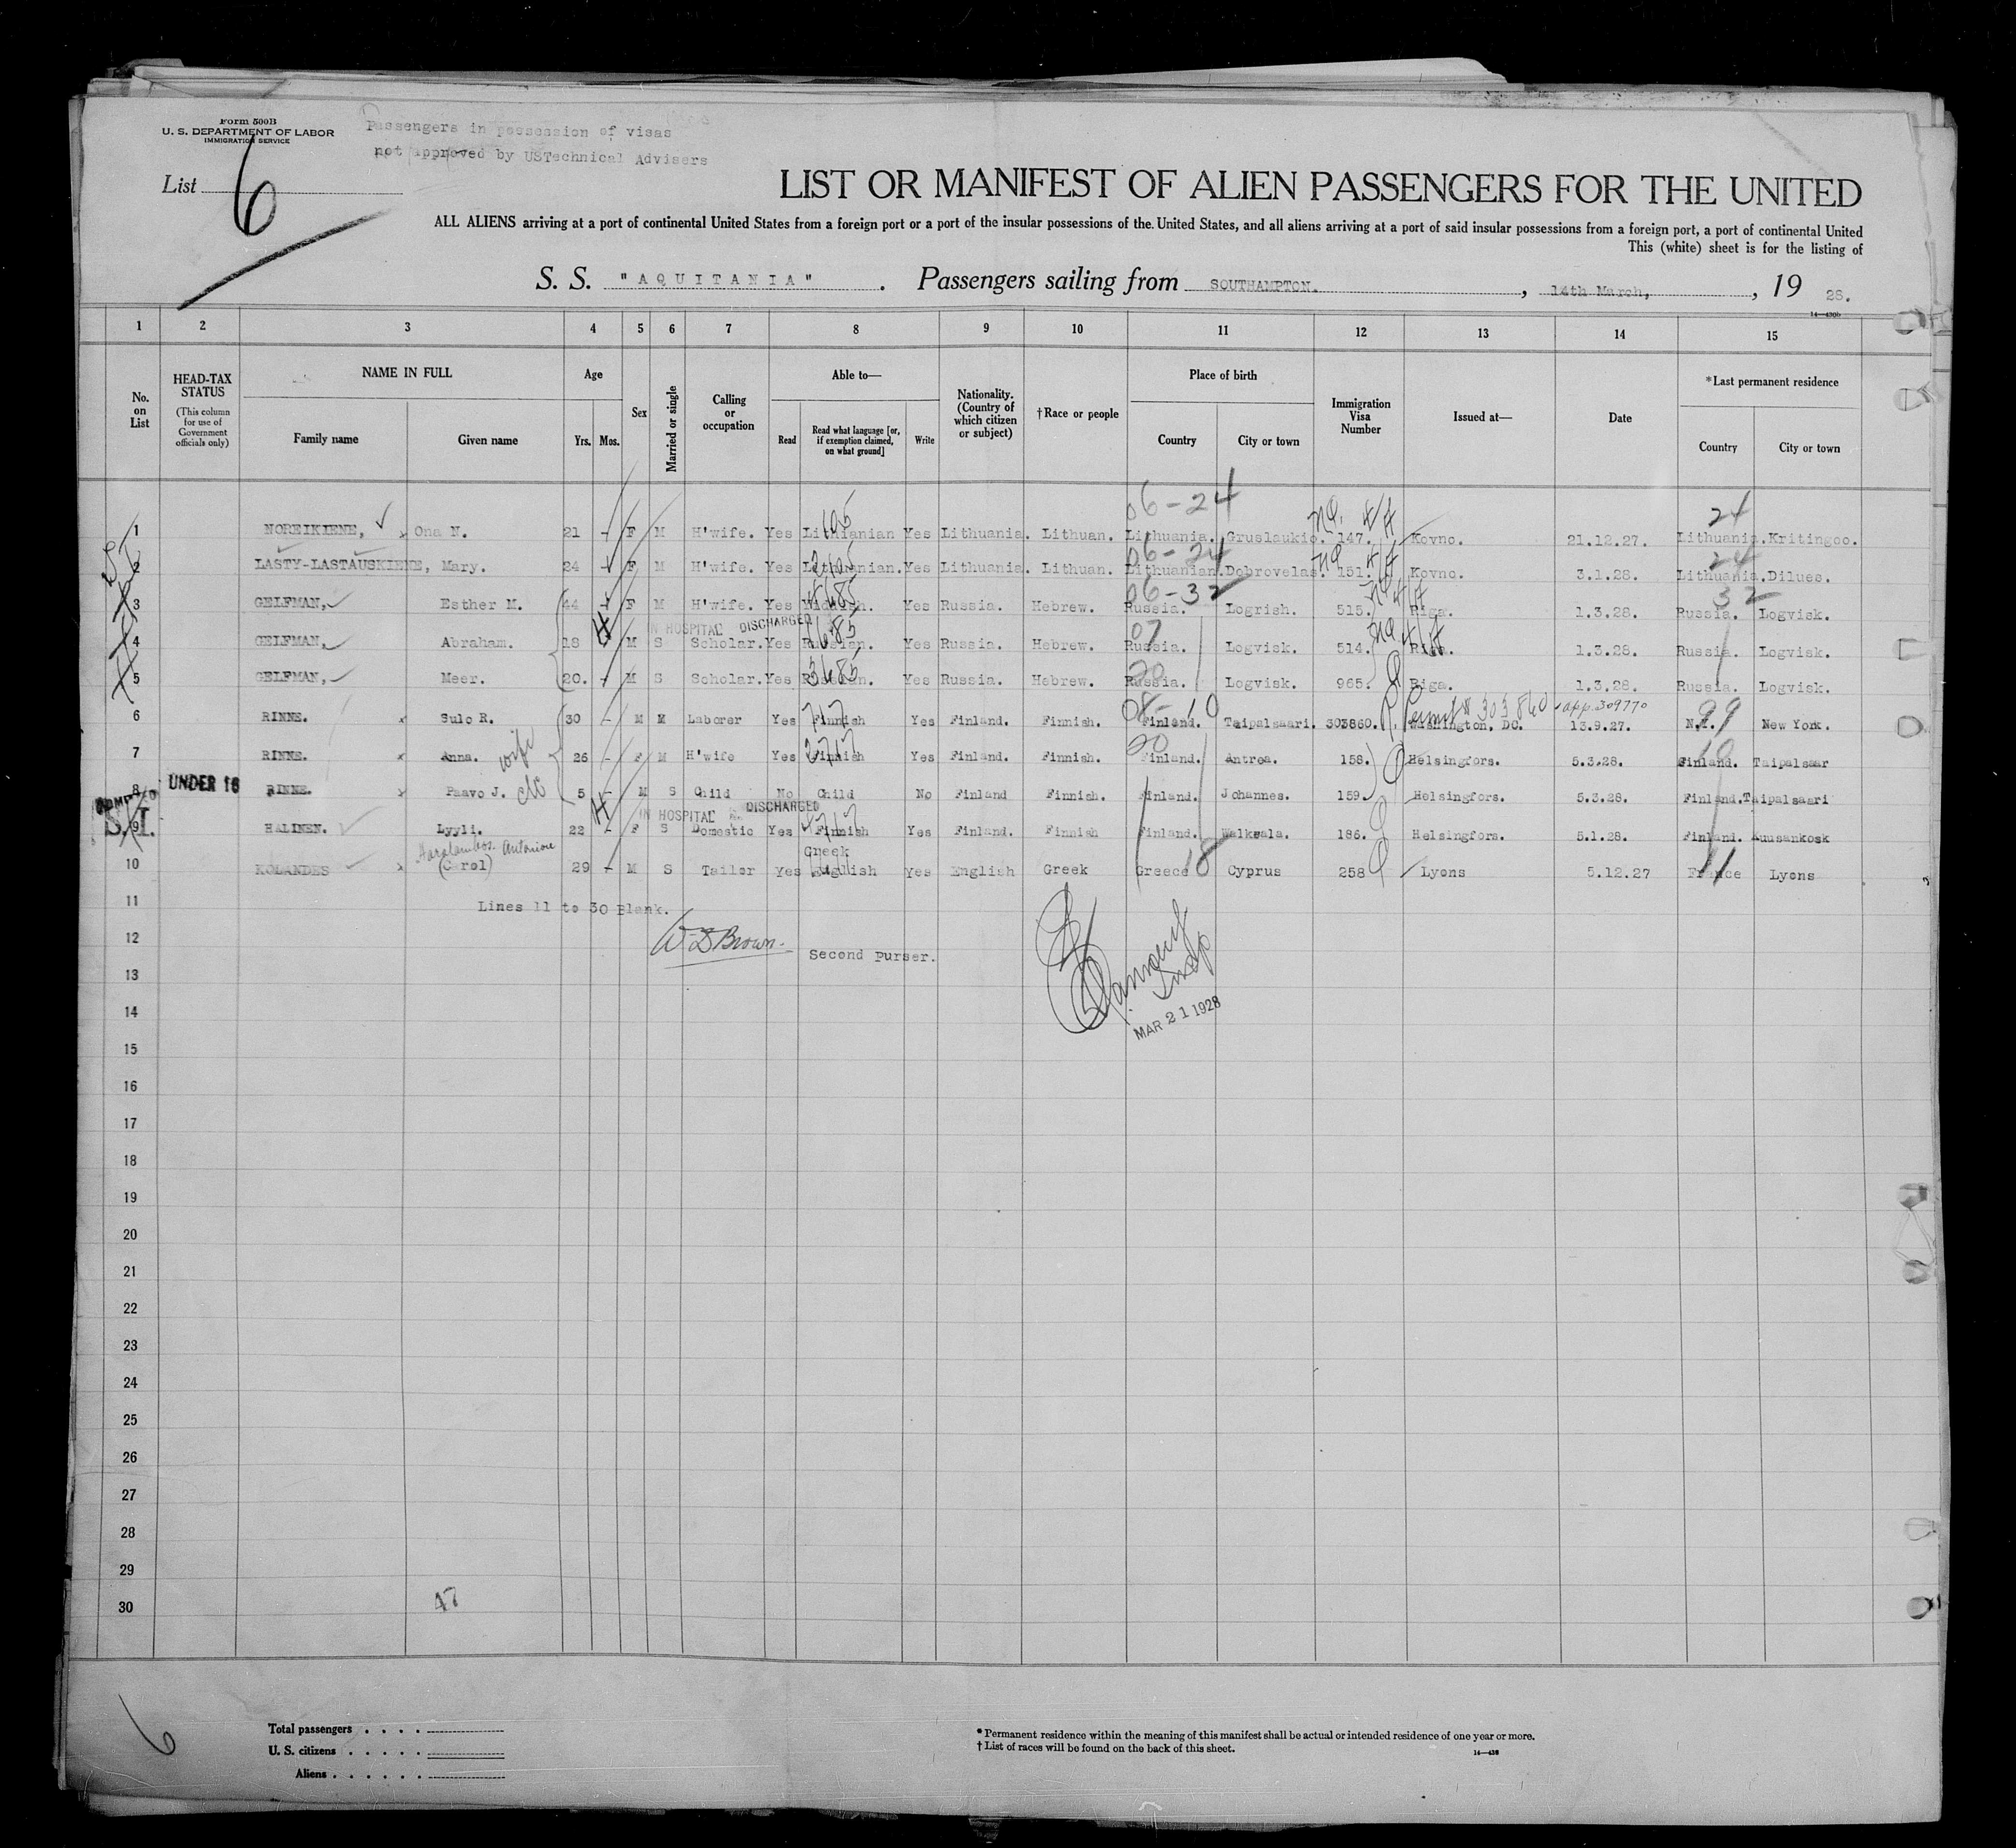 Form 500B
U. S. DEPARTMENT OF LABOR
IMMIGRATION SERVICE
Passengers in possession of visas
not approved by USTechnical Advisers
List 6
LIST OR MANIFEST OF ALIEN PASSENGERS FOR THE UNITED
ALL ALIENS arriving at a port of continental United States from a foreign port or a port of the insular possessions of the United States, and all aliens arriving at a port of said insular possessions from a foreign port, a port of continental United
This (white) sheet is for the listing of
S. S. "AQUITANIA" . Passengers sailing from SOUTHAMPTON. , 14th March, , 19 28.
14—430b
1 2 3 4 5 6 7 8 9 10 11 12 13 14 15
No. on List
HEAD-TAX STATUS (This column for use of Government officials only)
NAME IN FULL
Family name Given name
Age
Yrs. Mos.
Sex
Married or single
Calling or occupation
Able to—
Read Read what language [or, if exemption claimed, on what ground] Write
Nationality. (Country of which citizen or subject)
†Race or people
Place of birth
Country City or town
Immigration Visa Number
Issued at—
Date
*Last permanent residence
Country City or town
06-24 24
1 NOREIKIENE, Ona N. 21 - F M H'wife. Yes Lithianian Yes Lithuania. Lithuan. Lithuania. Gruslaukio. 147. Kovno. 21.12.27. Lithuania. Kritingoo.
06-24 24
2 LASTY-LASTAUSKIENE, Mary. 24 F M H'wife. Yes Lithuanian. Yes Lithuania. Lithuan. Lithuanian. Dobrovelas. 151. Kovno. 3.1.28. Lithuania. Dilues.
06-32 32
3 GELFMAN, Esther M. 44 F M H'wife. Yes Yes Russia. Hebrew. Russia. Logrish. 515. Riga. 1.3.28. Russia. Logvisk.
IN HOSPITAL DISCHARGED
4 GELFMAN, Abraham. 18 M S Scholar. Yes Russian. Yes Russia. Hebrew. Russia. Logvisk. 514. Riga. 1.3.28. Russia. Logvisk.
5 GELFMAN, Meer. 20. - M S Scholar. Yes Russian. Yes Russia. Hebrew. Russia. Logvisk. 965. Riga. 1.3.28. Russia. Logvisk.
Permit # 303860 app. 309770
6 RINNE. Sulo R. 30 - M M Laborer Yes Finnish Yes Finland. Finnish. Finland. Taipalsaari. 303860. Washington, DC. 13.9.27. N.Y. New York.
7 RINNE. Anna. wife 26 - F M H'wife Yes Finnish Yes Finland. Finnish. Finland. Antrea. 158. Helsingfors. 5.3.28. Finland. Taipalsaar
8 UNDER 16 RINNE. Paavo J. 5 - M S Child No Child No Finland Finnish. Finland. Johannes. 159 Helsingfors. 5.3.28. Finland. Taipalsaari
ADMITTED S.I. IN HOSPITAL DISCHARGED
9 HALINEN. Lyyli. 22 - F S Domestic Yes Finnish Yes Finland. Finnish Finland. Walkeala. 186. Helsingfors. 5.1.28. Finland. Kuusankosk
Haralambos Antoniou Greek
10 KOMANDES (Carol) 29 - M S Tailor Yes English Yes English Greek Greece Cyprus 258 Lyons 5.12.27 France Lyons
11 Lines 11 to 30 Blank.
12 W D Brown. Second Purser.
13
14 MAR 21 1928
15
16
17
18
19
20
21
22
23
24
25
26
27
28
29
30
47
6
Total passengers . . . .
U. S. citizens . . . . .
Aliens . . . . . .
* Permanent residence within the meaning of this manifest shall be actual or intended residence of one year or more.
† List of races will be found on the back of this sheet.
14—430